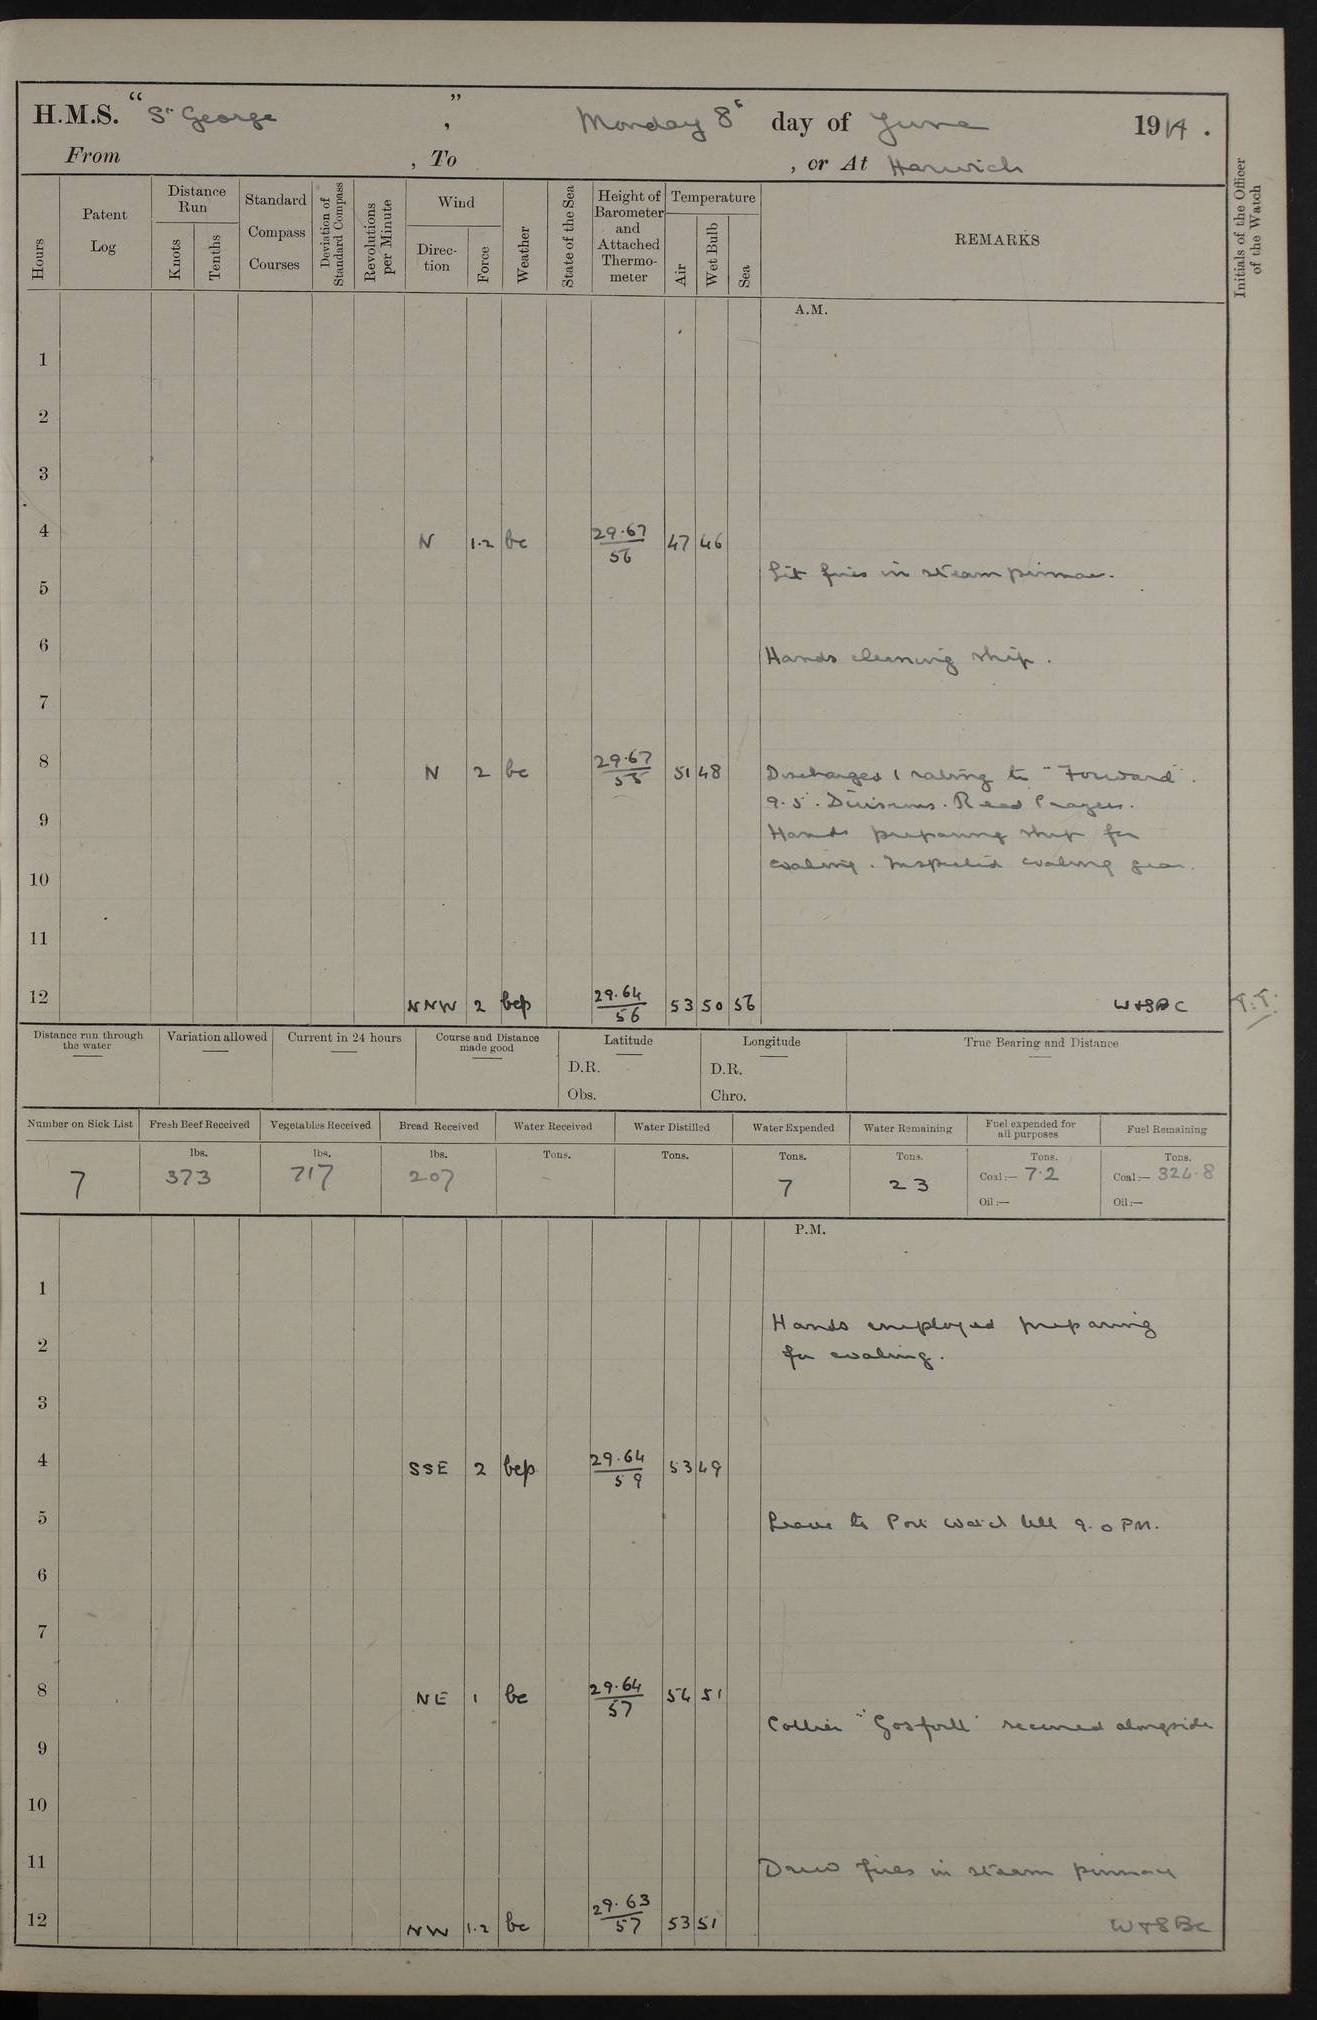 H.M.S. "St George", Monday 8th day of June 1914.
From , To , or At Harwich
Hours
Patent Log
Distance Run
Knots
Tenths
Standard Compass Courses
Deviation of Standard Compass
Revolutions per Minute
Wind
Direction
Force
Weather
State of the Sea
Height of Barometer and Attached Thermometer
Temperature
Air
Wet Bulb
Sea
REMARKS
Initials of the Officer of the Watch
A.M.
1
2
3
4 N 1.2 bc 29.67/56 47 46
Lit fires in steam pinnace.
5
6
Hands cleaning ship.
7
8 N 2 bc 29.67/55 51 48 Discharged 1 rating to "Forward".
9.5. Divisions. Read Prayers.
9
Hands preparing ship for
coaling. Inspected coaling gear.
10
11
12 NNW 2 bcp 29.64/56 53 50 56 W+SBC
Distance run through the water
Variation allowed
Current in 24 hours
Course and Distance made good
Latitude
D.R.
Obs.
Longitude
D.R.
Chro.
True Bearing and Distance
Number on Sick List
Fresh Beef Received
Vegetables Received
Bread Received
Water Received
Water Distilled
Water Expended
Water Remaining
Fuel expended for all purposes
Fuel Remaining
lbs. lbs. lbs. Tons. Tons. Tons. Tons. Tons. Tons.
7 373 717 207 - 7 23 Coal:— 7.2 Coal:— 324.8
Oil:— Oil:—
P.M.
1
Hands employed preparing
2
for coaling.
3
4 SSE 2 bcp 29.64/59 53 49
5 Leave to Port Watch till 9.0 PM.
6
7
8 NE 1 bc 29.64/57 54 51
Collier "Gosforth" secured alongside
9
10
11 Drew fires in steam pinnace
12 NW 1.2 bc 29.63/57 53 51 W+SBC